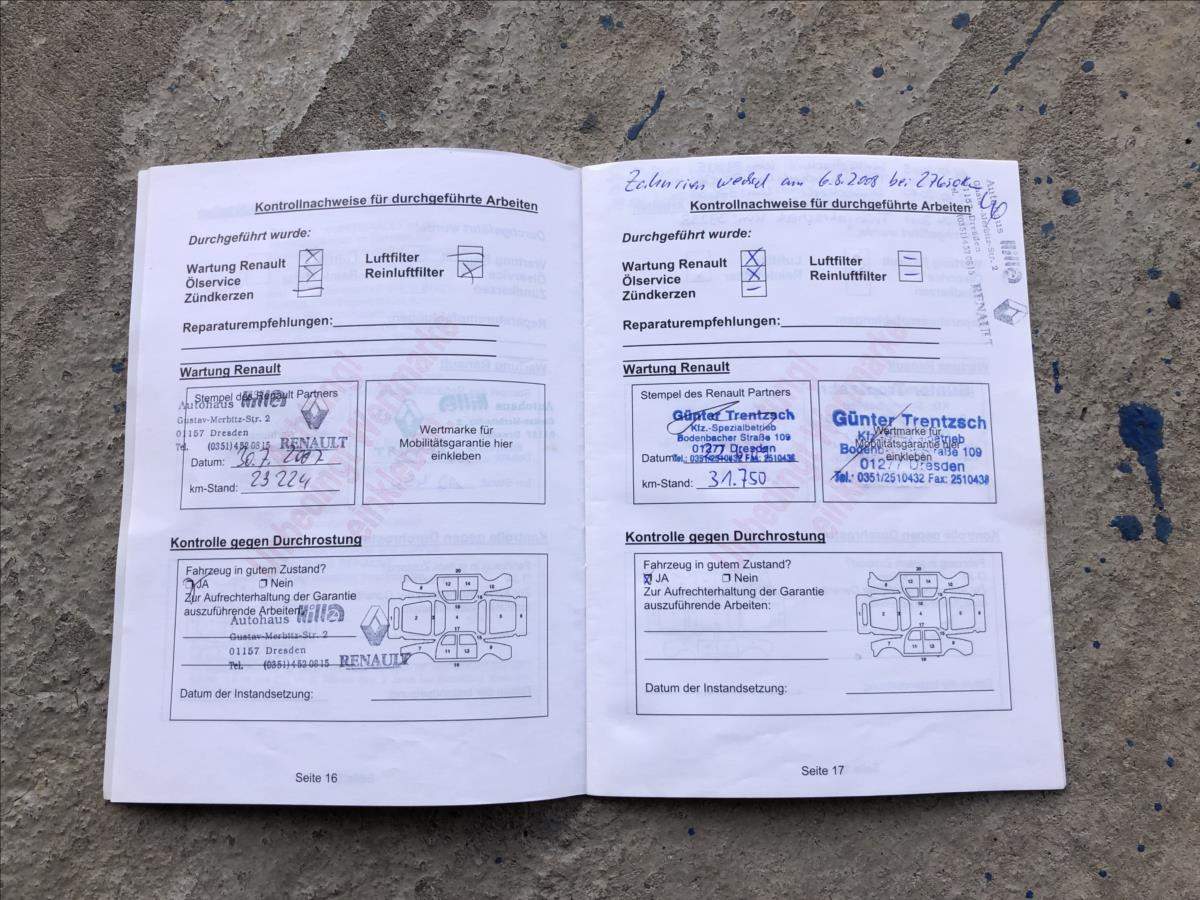 Kontrollnachweise für durchgeführte Arbeiten
Durchgeführt wurde:
Wartung Renault
Luftfilter
Ölservice
Reinluftfilter
Zündkerzen
Reparaturempfehlungen:
Wartung Renault
Stempel des Renault Partners
Autohaus Hilla
Gustav-Merbitz-Str. 2
01157 Dresden
Tel. (0351) 452 08 15 RENAULT
Datum: 30.7. 2007
km-Stand: 23 224
Wertmarke für
Mobilitätsgarantie hier
einkleben
Kontrolle gegen Durchrostung
Fahrzeug in gutem Zustand?
JA Nein
Zur Aufrechterhaltung der Garantie
auszuführende Arbeiten:
Autohaus Hilla
Gustav-Merbitz-Str. 2
01157 Dresden
Tel. (0351) 452 08 15 RENAULT
Datum der Instandsetzung:
Seite 16
Zahnriemen wechsel am 6.8.2008 bei
Kontrollnachweise für durchgeführte Arbeiten
Durchgeführt wurde:
Wartung Renault
Luftfilter
Ölservice
Reinluftfilter
Zündkerzen
Reparaturempfehlungen:
RENAULT
Wartung Renault
Stempel des Renault Partners
Günter Trentzsch
Kfz.-Spezialbetrieb
Bodenbacher Straße 109
01277 Dresden
Datum:
Tel.: 0351/2510432 Fax: 2510438
km-Stand: 31.750
Günter Trentzsch
Wertmarke für
Mobilitätsgarantie hier
einkleben
01277 Dresden
Tel.: 0351/2510432 Fax: 2510438
Kontrolle gegen Durchrostung
Fahrzeug in gutem Zustand?
JA Nein
Zur Aufrechterhaltung der Garantie
auszuführende Arbeiten:
Datum der Instandsetzung:
Seite 17